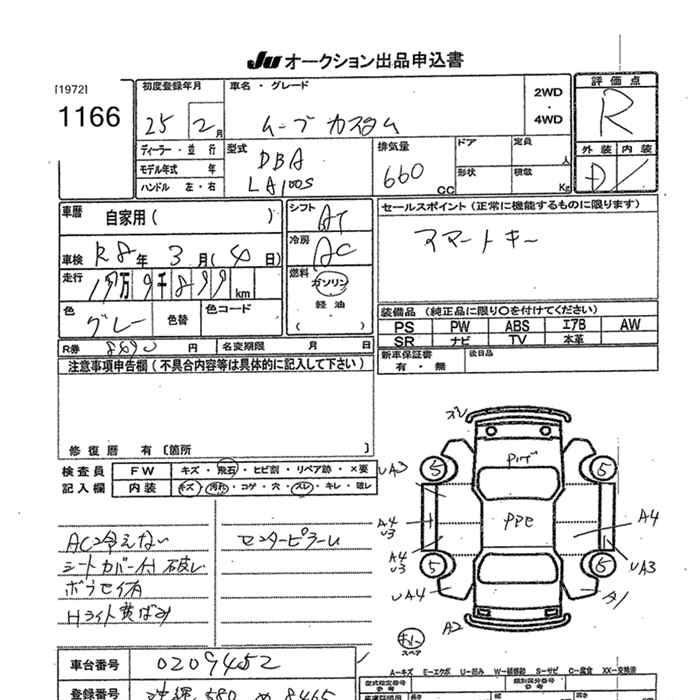 JU オークション出品申込書
[1972]
1166
初度登録年月
25 2月
車名・グレード
ムーブ カスタム
2WD
・
4WD
評価点
R
ディーラー・並行
モデル年式 年
ハンドル 左・右
型式
DBA
LA100S
排気量
660 CC
ドア
定員
人
形状
積載
Kg
外装 内装
D
車歴
自家用 ( )
シフト
AT
セールスポイント (正常に機能するものに限ります)
スマートキー
車検
R8年 3月 (4日)
冷房
AC
走行
9千899 km
燃料
ガソリン
軽油
( )
色
グレー
色替
色コード
装備品 (純正品に限り○を付けてください)
PS PW ABS エアB AW
SR ナビ TV 本革
R券 円
名変期限 月 日
新車保証書
有・無
後日品
注意事項申告欄 (不具合内容等は具体的に記入して下さい)
修復歴 有 [箇所 ]
検査員
記入欄
FW
キズ・飛石・ヒビ割・リペア跡・×要
内装
キズ・汚れ・コゲ・穴・スレ・キレ・破レ
AC冷えない
シートカバー付 破レ
Hライト黄ばみ
センターピラーL
UA3
5
5
A4
U3
PPE
A4
A4
U3
5
5
UA3
UA4
A2
スペア
A─キズ E─エクボ U─凹み W─補修跡 S─サビ C─腐食 XX─交換済
車台番号
0209452
型式指定番号
類別区分番号
登録番号
580 8465